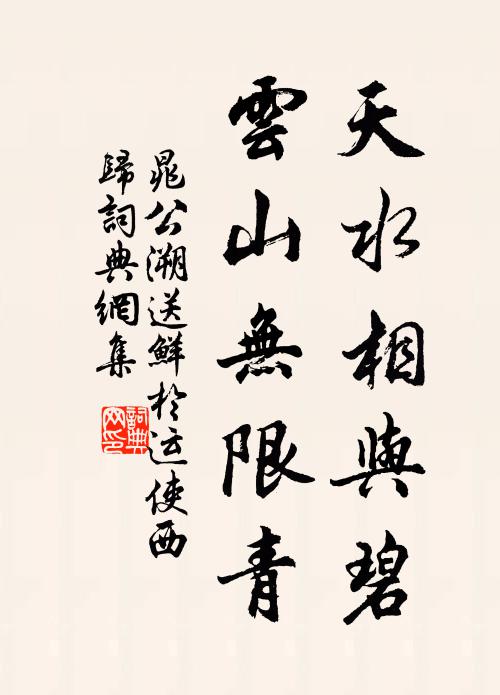 天水相與碧
雲山無限青
晁公溯送鮮於运使西
歸詞典網集
詞典
网印